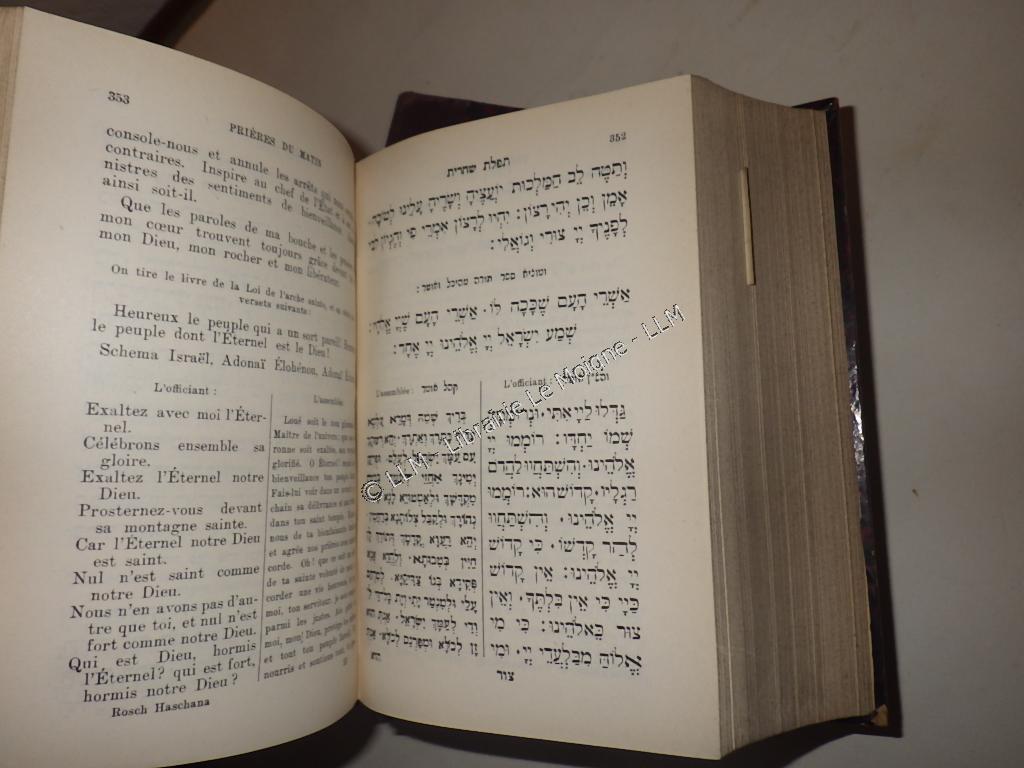 353
PRIÈRES DU MATIN
console-nous et annule les arrêts qui nous
contraires. Inspire au chef de l'État et
nistres des sentiments de bienveillance
ainsi soit-il.
Que les paroles de ma bouche et les
mon cœur trouvent toujours grâce devant
mon Dieu, mon rocher et mon libérateur.
On tire le livre de la Loi de l'arche sainte, et
versets suivants:
Heureux le peuple qui a un sort pareil!
le peuple dont l'Éternel est le Dieu!
Schema Israël, Adonaï Élohénou, Adonaï
L'officiant:
Exaltez avec moi l'Éter-
nel.
Célébrons ensemble sa
gloire.
Exaltez l'Éternel notre
Dieu.
Prosternez-vous devant
sa montagne sainte.
Car l'Éternel notre Dieu
est saint.
Nul n'est saint comme
notre Dieu.
Nous n'en avons pas d'au-
tre que toi, et nul n'est
fort comme notre Dieu.
Qui est Dieu, hormis
l'Éternel? qui est fort,
hormis notre Dieu?
L'assemblée
Loué soit le nom
Maître de l'univers;
ronne soit exaltée,
glorifié. O Éternel!
bienveillance ton peuple
Fais-lui voir dans
chain sa délivrance et
dans ton saint temple.
nous de ta bienfaisante
et agrée nos prières
corde. Oh! que ce soit
de ta sainte volonté de
corder une vie heureuse,
moi, ton serviteur,
parmi les justes.
moi, mon Dieu, protège
et tout ton peuple
nourris et soutiens tout,
Rosch Haschana
352
תפלת שחרית
וְתַטֶּה לֵב הַמַּלְכוּת יוֹעֲצֶיהָ וְשָׂרֶיהָ עָלֵינוּ לְטוֹבָה.
אָמֵן וְכֵן יְהִי רָצוֹן: יִהְיוּ לְרָצוֹן אִמְרֵי פִי וְהֶגְיוֹן לִבִּי
לְפָנֶיךָ יְיָ צוּרִי וְגוֹאֲלִי:
ומוציא ספר תורה מהיכל ואומר:
אַשְׁרֵי הָעָם שֶׁכָּכָה לּוֹ. אַשְׁרֵי הָעָם שֶׁיְיָ אֱלֹהָיו:
שְׁמַע יִשְׂרָאֵל יְיָ אֱלֹהֵינוּ יְיָ אֶחָד:
L'officiant:
גַּדְּלוּ לַיְיָ אִתִּי. וּנְרוֹמְמָה
שְׁמוֹ יַחְדָּו: רוֹמְמוּ יְיָ
אֱלֹהֵינוּ. וְהִשְׁתַּחֲווּ לַהֲדֹם
רַגְלָיו. קָדוֹשׁ הוּא: רוֹמְמוּ
יְיָ אֱלֹהֵינוּ. וְהִשְׁתַּחֲווּ
לְהַר קָדְשׁוֹ. כִּי קָדוֹשׁ
יְיָ אֱלֹהֵינוּ: אֵין קָדוֹשׁ
כַּיְיָ כִּי אֵין בִּלְתֶּךָ. וְאֵין
צוּר כֵּאלֹהֵינוּ: כִּי מִי
אֱלוֹהַּ מִבַּלְעֲדֵי יְיָ. וּמִי
צור
L'assemblée: קהל אומר
בְּרִיךְ שְׁמֵהּ דְּמָרֵא עָלְמָא
עִם עַמָּךְ יִשְׂרָאֵל לְעָלַם.
מַקְדְּשָׁךְ. וּלְאַמְטוּיֵא לָנָא מִטּוּב
נְהוֹרָךְ. וּלְקַבֵּל צְלוֹתָנָא
יְהֵא רַעֲוָא קֳדָמָךְ
חַיִּין בְּטִיבוּתָא. וְלֶהֱוֵא אֲנָא
פְקִידָא בְּגוֹ צַדִּיקַיָּא. לְמִרְחַם
עָלַי וּלְמִנְטַר יָתִי וְיָת כָּל דִּי לִי
וְדִי לְעַמָּךְ יִשְׂרָאֵל. אַנְתְּ הוּא
זָן לְכֹלָּא וּמְפַרְנֵס לְכֹלָּא.
© LLM - Librairie Le Moigne - LLM